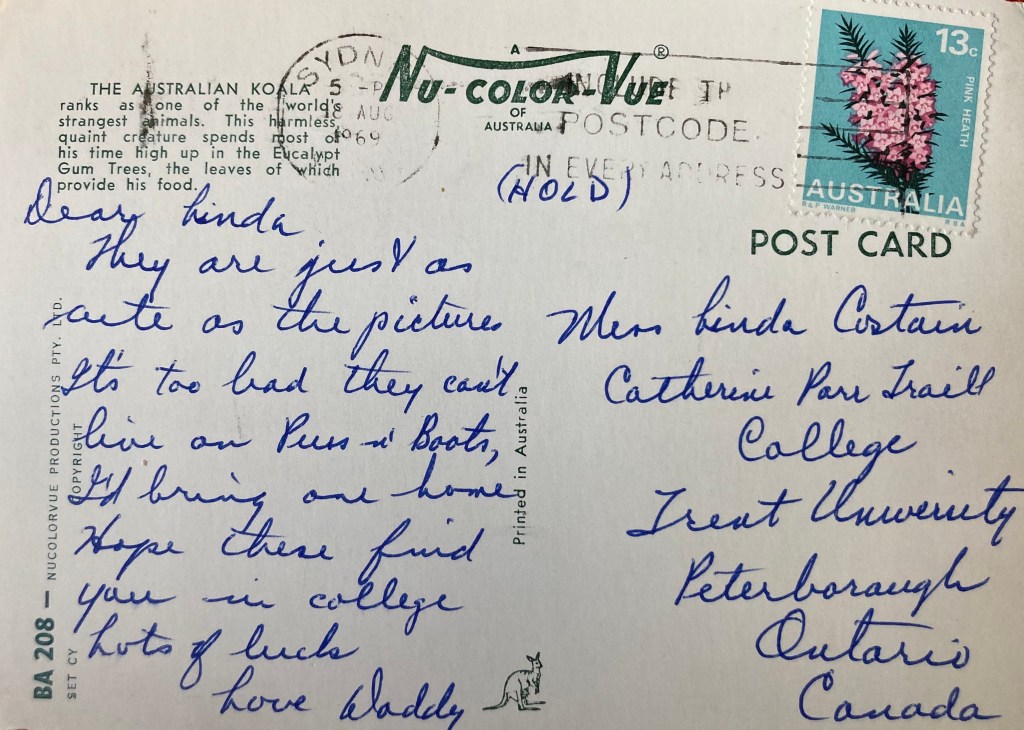 THE AUSTRALIAN KOALA
ranks as one of the world's
strangest animals. This harmless
quaint creature spends most of
his time high up in the Eucalypt
Gum Trees, the leaves of which
provide his food.
SYDN
5 -P
18 AUG
1969
A
NU-COLOR-VUE ®
OF
AUSTRALIA
INCLUDE TH
POSTCODE
IN EVERY ADDRESS
13c
PINK HEATH
AUSTRALIA
R&P WARNER
RBA
POST CARD
(HOLD)
Dear Linda
They are just as
cute as the pictures
It's too bad they can't
live on Puss n' Boots,
I'd bring one home
Hope these find
you in college
Lots of luck
Love Daddy
Miss Linda Costain
Catherine Parr Traill
College
Trent University
Peterborough
Ontario
Canada
Printed in Australia
BA 208 — NUCOLORVUE PRODUCTIONS PTY. LTD.
SET CY COPYRIGHT